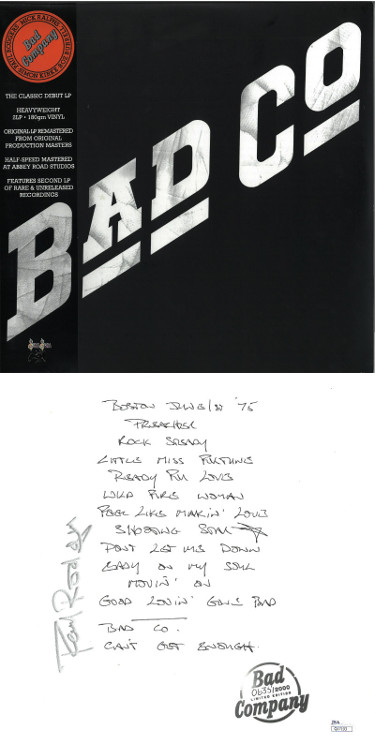 PAUL RODGERS MICK RALPHS
Bad
Company
SIMON KIRKE
THE CLASSIC DEBUT LP
HEAVYWEIGHT
2LP • 180gm VINYL
ORIGINAL LP REMASTERED
FROM ORIGINAL
PRODUCTION MASTERS
HALF-SPEED MASTERED
AT ABBEY ROAD STUDIOS
FEATURES SECOND LP
OF RARE & UNRELEASED
RECORDINGS
BAD CO
BOSTON JUNE/ '75
PREACHER
ROCK STEADY
LITTLE MISS FORTUNE
READY FOR LOVE
WILD FIRE WOMAN
FEEL LIKE MAKIN' LOVE
SHOOTING STAR
DON'T LET ME DOWN
EASY ON MY SOUL
MOVIN' ON
GOOD LOVIN' GONE BAD
BAD CO.
CAN'T GET ENOUGH.
Paul Rodgers
Bad
0635/2000
LIMITED EDITION
Company